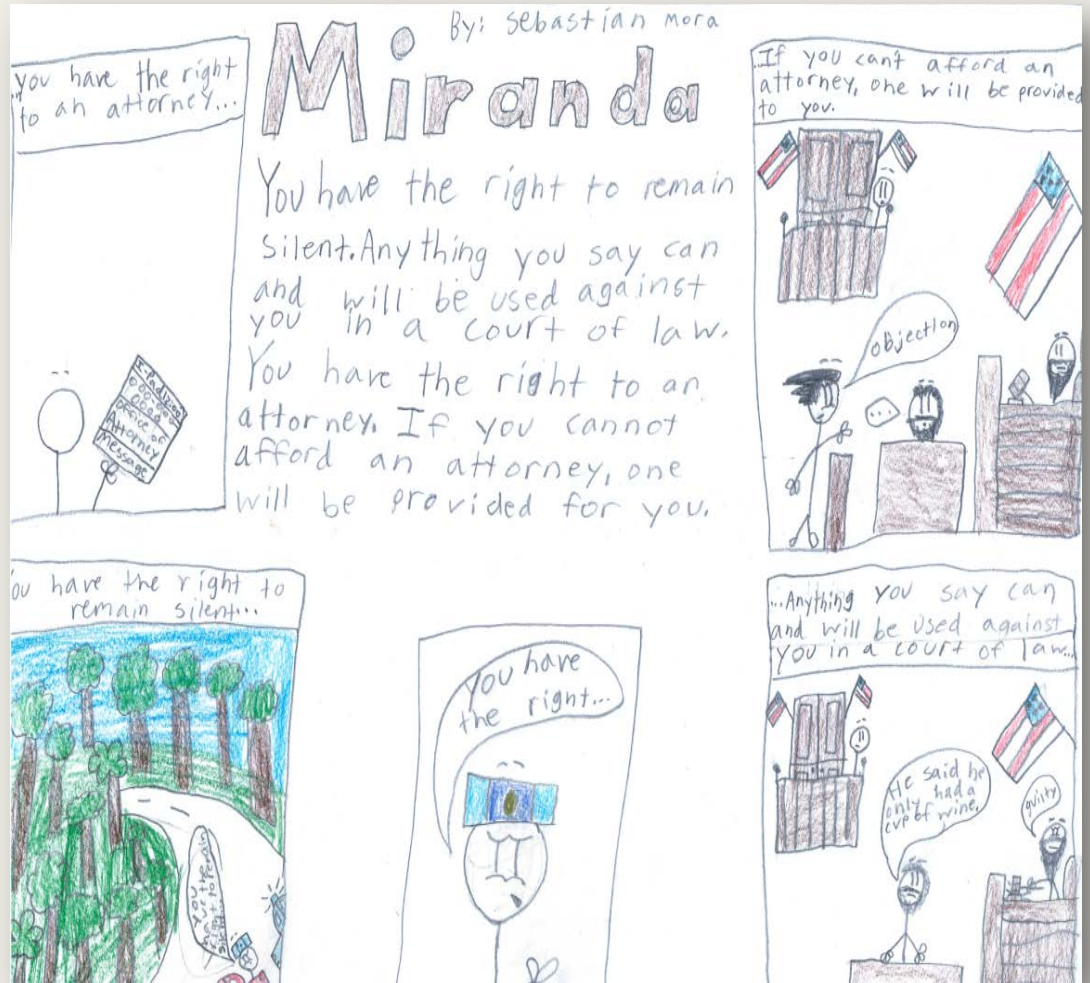 By: Sebastian Mora
Miranda
You have the right to remain
silent. Anything you say can
and will be used against
you in a court of law.
You have the right to an
attorney. If you cannot
afford an attorney, one
will be provided for you.
...you have the right
to an attorney...
Office of
Attorney
Message
...If you can't afford an
attorney, one will be provided
to you.
objection
...
ou have the right to
remain silent...
You
have the
right to remain
You have
the right...
...Anything you say can
and will be used against
you in a court of law...
He said he
only had a
cup of wine.
guilty